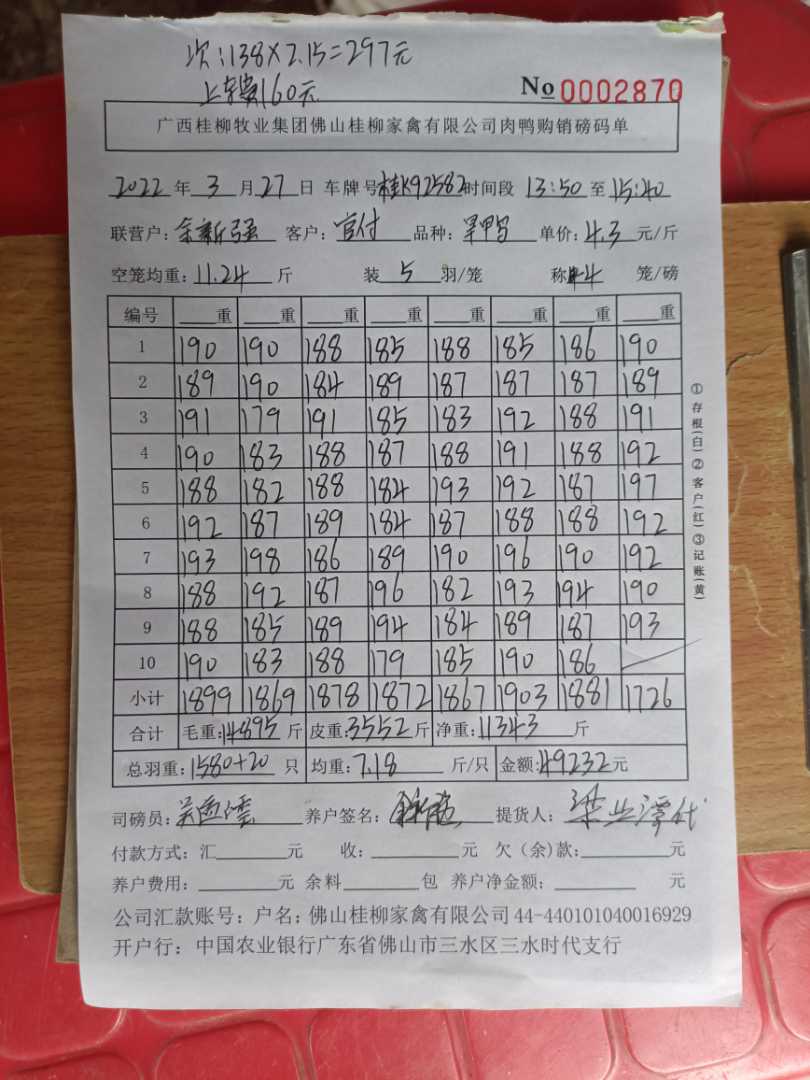 次:138×2.15=297元
上车费160元
No 0002870
广西桂柳牧业集团佛山桂柳家禽有限公司肉鸭购销磅码单
2022 年 3 月 27 日 车牌号 桂K92582 时间段 13:50 至 15:40
联营户: 余新强 客户: 官付 品种: 单价: 4.3 元/斤
空笼均重: 11.24 斤 装 5 羽/笼 称 4 笼/磅
编号 重 重 重 重 重 重 重 重
1 190 190 188 185 188 185 186 190
2 189 190 184 189 187 187 187 189
3 191 179 191 185 183 192 188 191
4 190 183 188 187 188 191 188 192
5 188 182 188 184 193 192 187 197
6 192 187 189 184 187 188 188 192
7 193 198 186 189 190 196 190 192
8 188 192 187 196 182 193 194 190
9 188 185 189 194 184 189 187 193
10 190 183 188 179 185 190 186
小计 1899 1869 1878 1872 1867 1903 1881 1726
合计 毛重: 14895 斤 皮重: 3552 斤 净重: 11343 斤
总羽重: 1580+20 只 均重: 7.18 斤/只 金额: 49232 元
司磅员: 养户签名: 提货人:
付款方式: 汇 元 收: 元 欠(余)款: 元
养户费用: 元 余料 包 养户净金额: 元
公司汇款账号: 户名: 佛山桂柳家禽有限公司 44-440101040016929
开户行: 中国农业银行广东省佛山市三水区三水时代支行
①存根(白)②客户(红)③记账(黄)